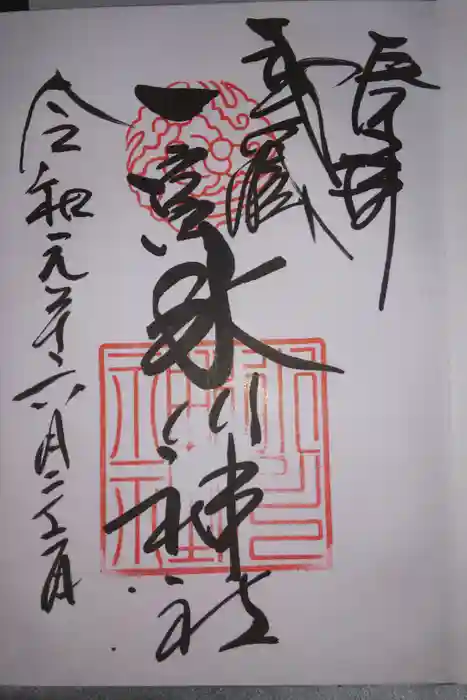 奉拝
武蔵
一宮氷川神社
令和元年六月二日